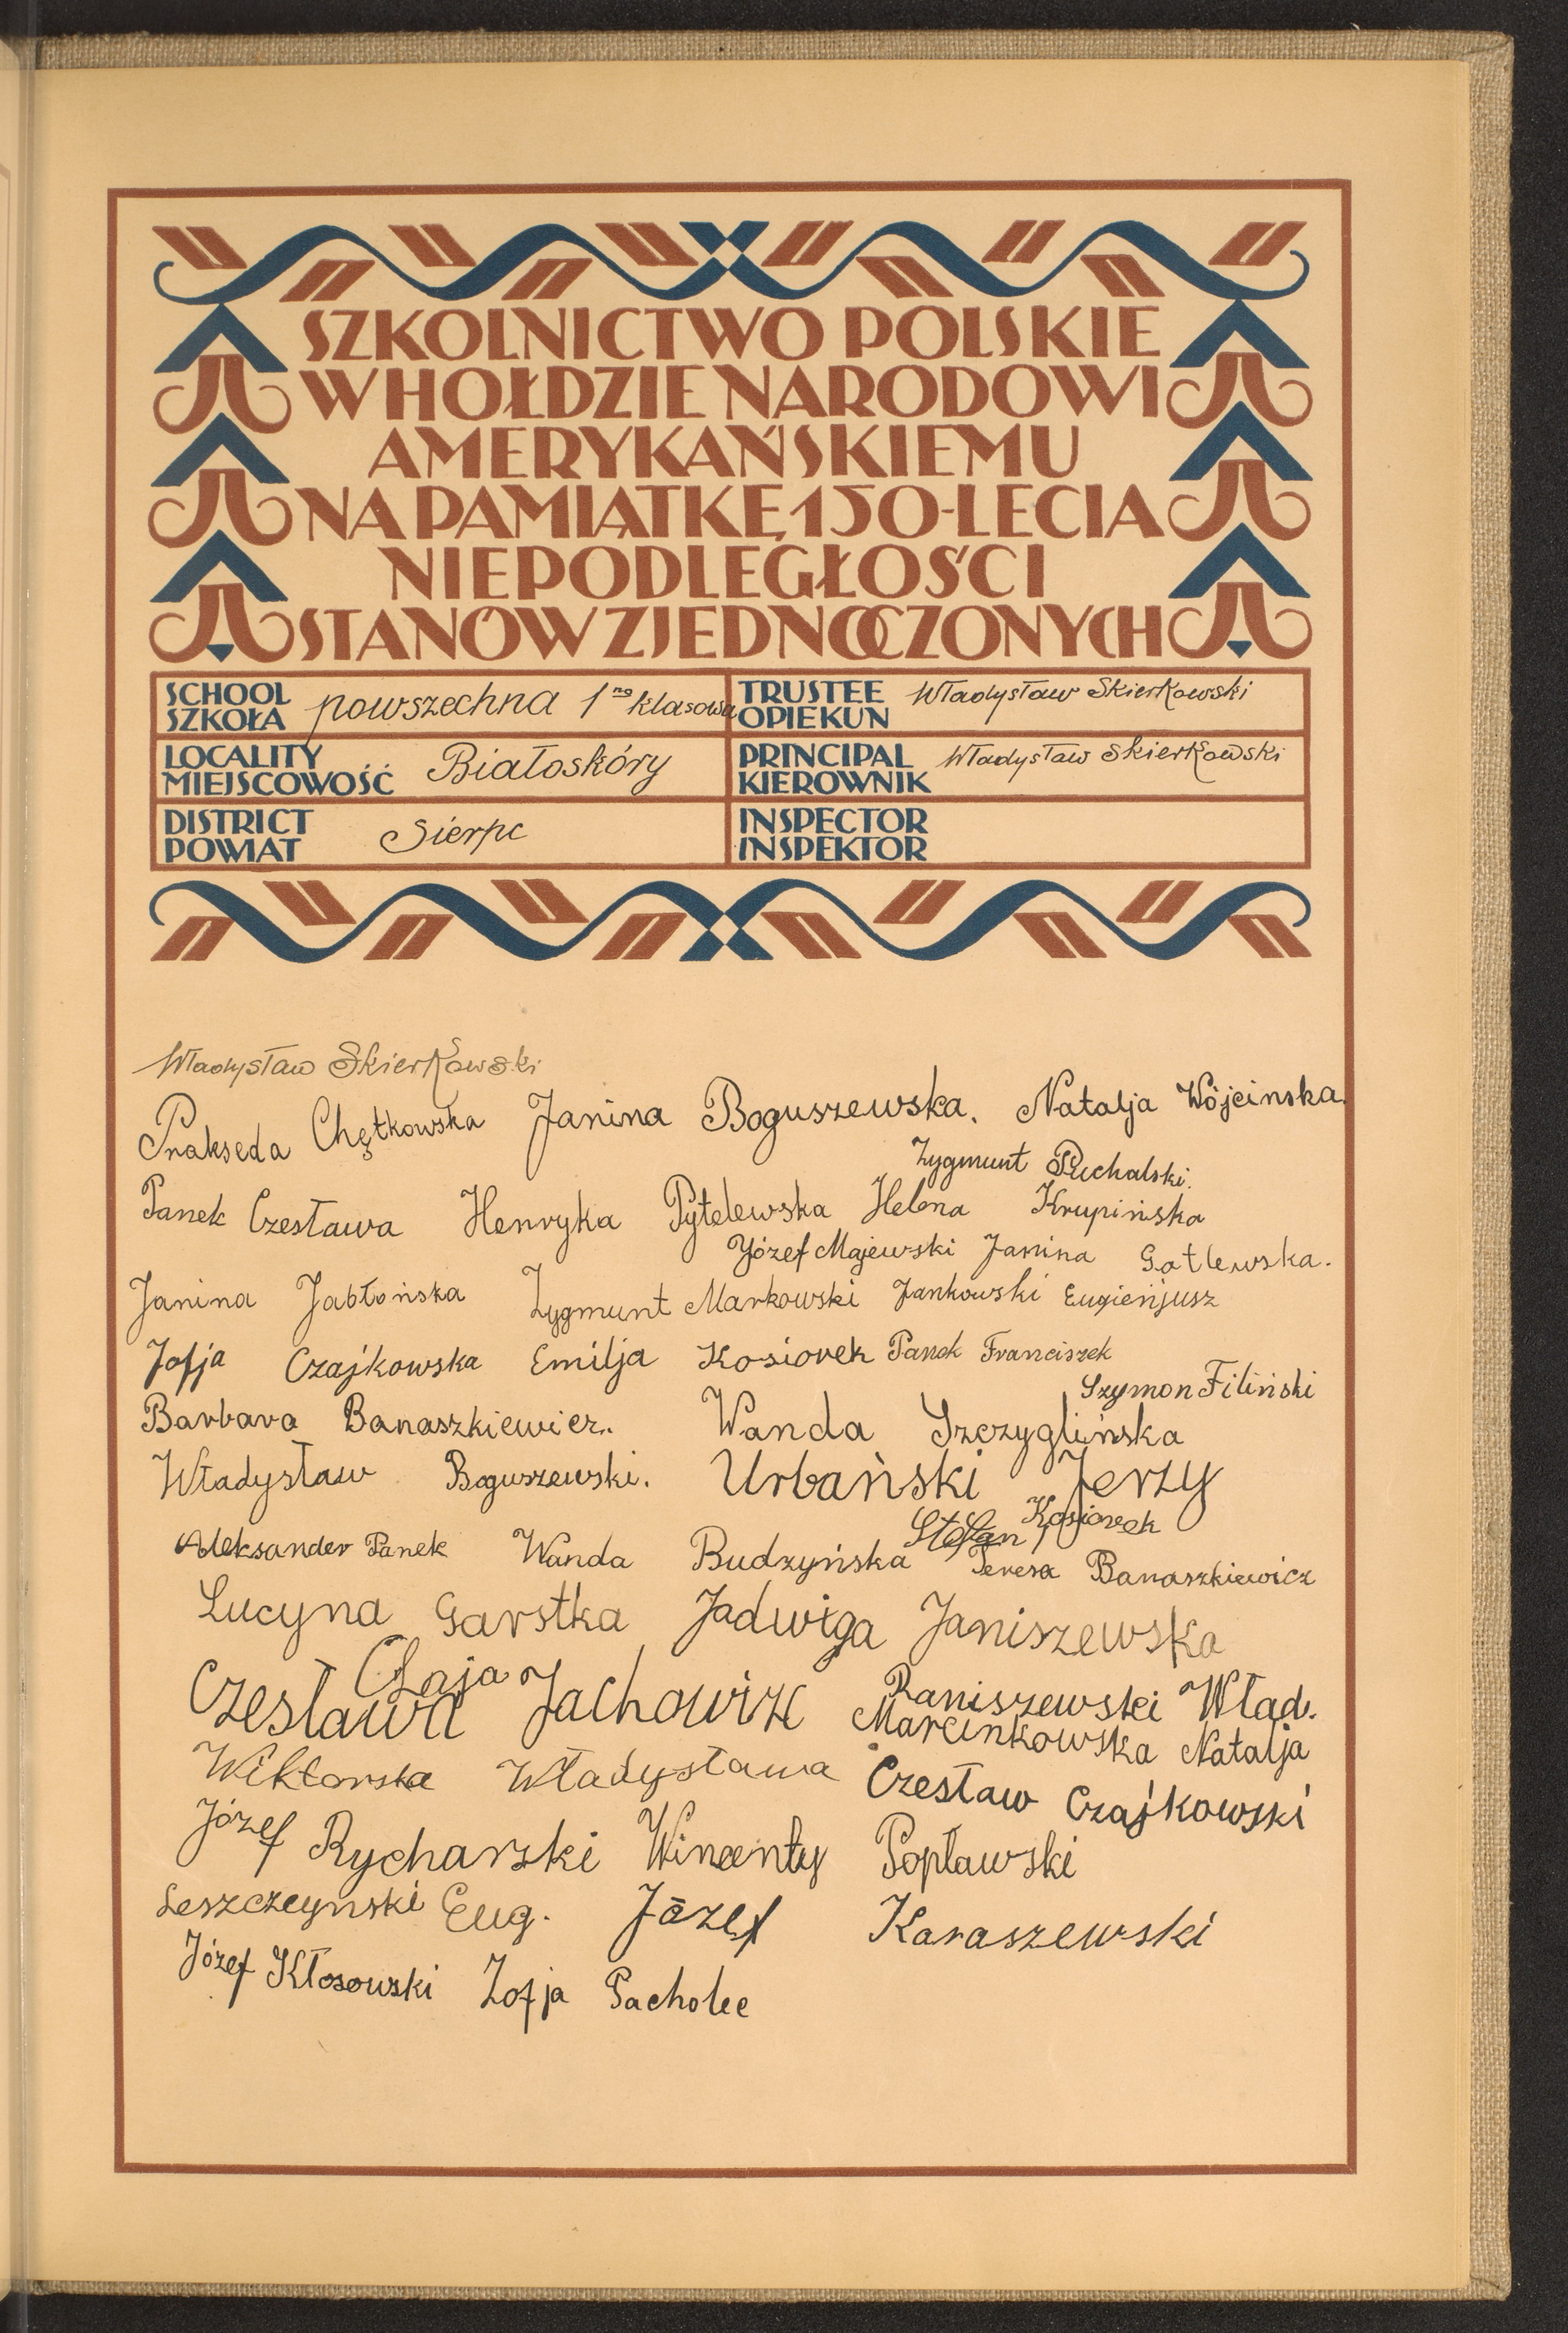 SZKOLNICTWO POLSKIE
W HOŁDZIE NARODOWI
AMERYKAŃSKIEMU
NA PAMIĄTKĘ 150-LECIA
NIEPODLEGŁOŚCI
STANÓW ZJEDNOCZONYCH
SCHOOL
SZKOŁA
powszechna 1no klasowa
TRUSTEE
OPIEKUN
Władysław Skierkowski
LOCALITY
MIEJSCOWOŚĆ
Białoskóry
PRINCIPAL
KIEROWNIK
Władysław Skierkowski
DISTRICT
POWIAT
Sierpc
INSPECTOR
INSPEKTOR
Władysław Skierkowski
Prakseda Chętkowska Janina Boguszewska. Natalja Wójcinska.
Zygmunt Puchalski.
Panek Czesława Henryka Pytelewska Helena Krupińska
Józef Majewski Janina Gotlewska.
Janina Jabłońska Zygmunt Markowski Jankowski Eugienjusz
Zofja Czajkowska Emilja Kosiorek Panek Franciszek
Szymon Filiński
Barbara Banaszkiewicz. Wanda Szczyglińska
Władysław Boguszewski. Urbański Jerzy
Stefan Kosiorek
Aleksander Panek Wanda Budzyńska Teresa Banaszkiewicz
Lucyna Garstka Jadwiga Janiszewska
Czesława Jachowizc Raniszewski Wład.
Marcinkowska Natalja
Wiktorska Władysława Czesław Czajkowski
Józef Rycharski Wincenty Popławski
Leszczeynski Eug. Józef Karaszewski
Józef Kłosowski Zofja Pacholec